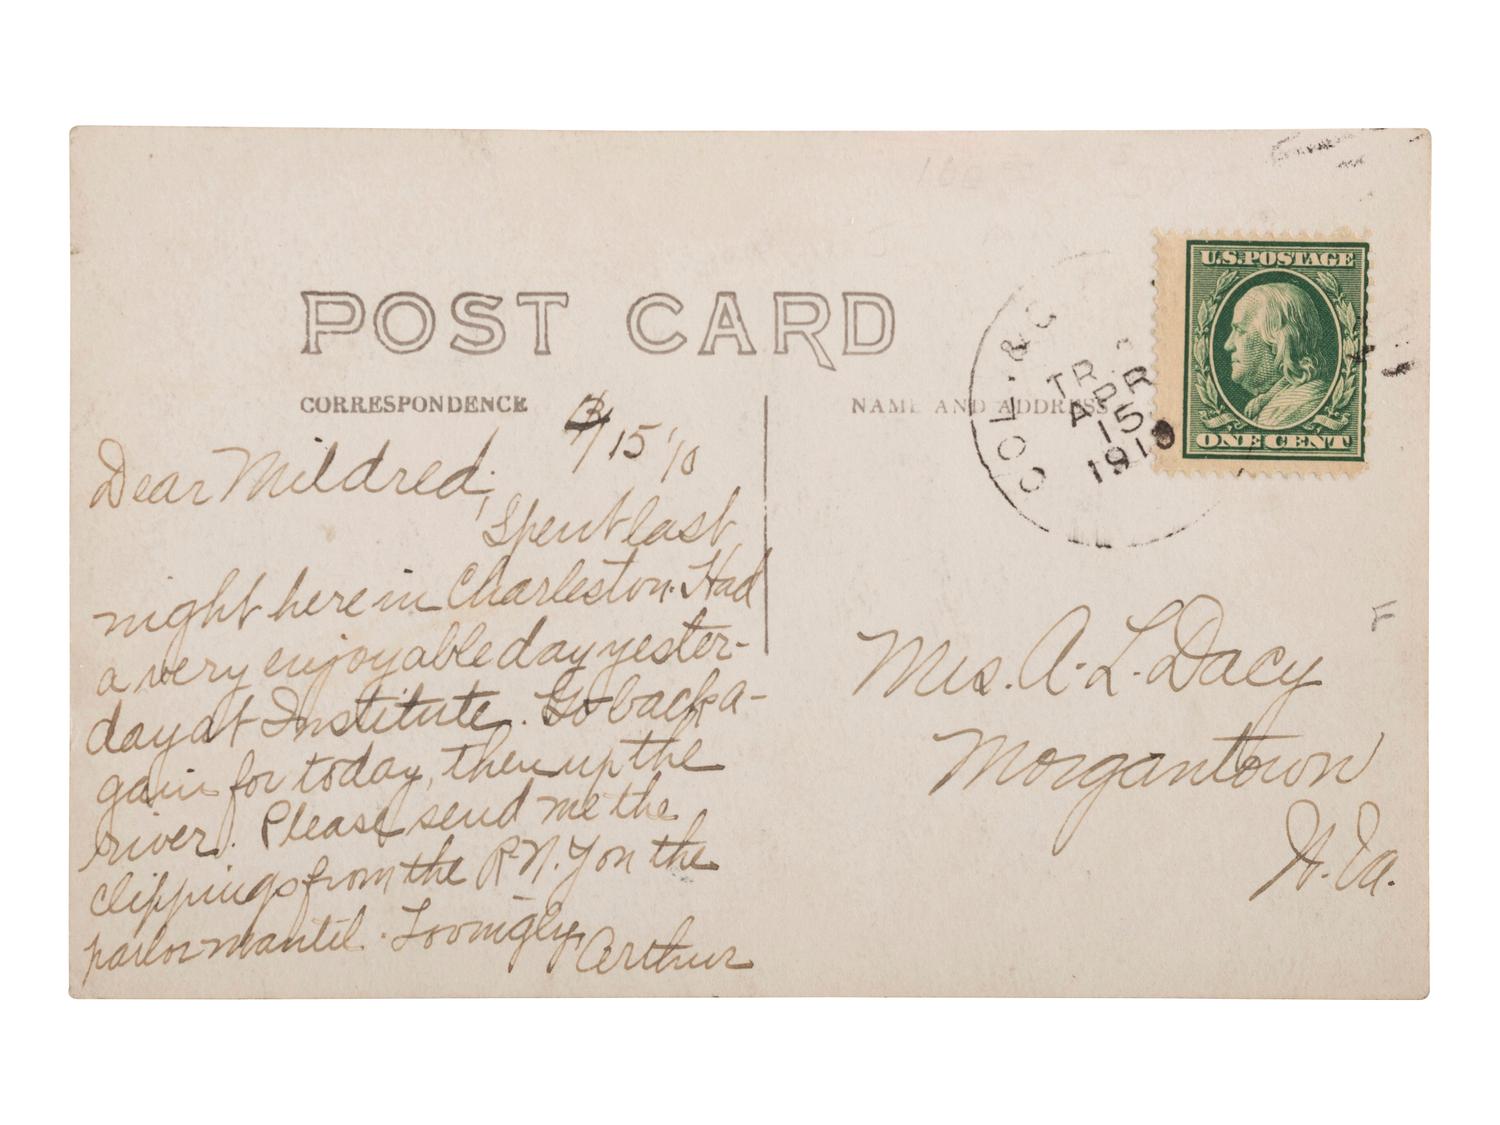 POST CARD
CORRESPONDENCE
NAME AND ADDRESS
U.S. POSTAGE
ONE CENT
COL. & C
TR.
APR
15
1910
15 '10
Dear Mildred,
Spent last
night here in Charleston. Had
a very enjoyable day yester-
day at Institute. Go back a-
gain for today, then up the
river. Please send me the
clippings from the R. N. Y on the
parlor mantil. Lovingly,
Arthur
Mrs. A. L. Dacy
Morgantown
W. Va.
F